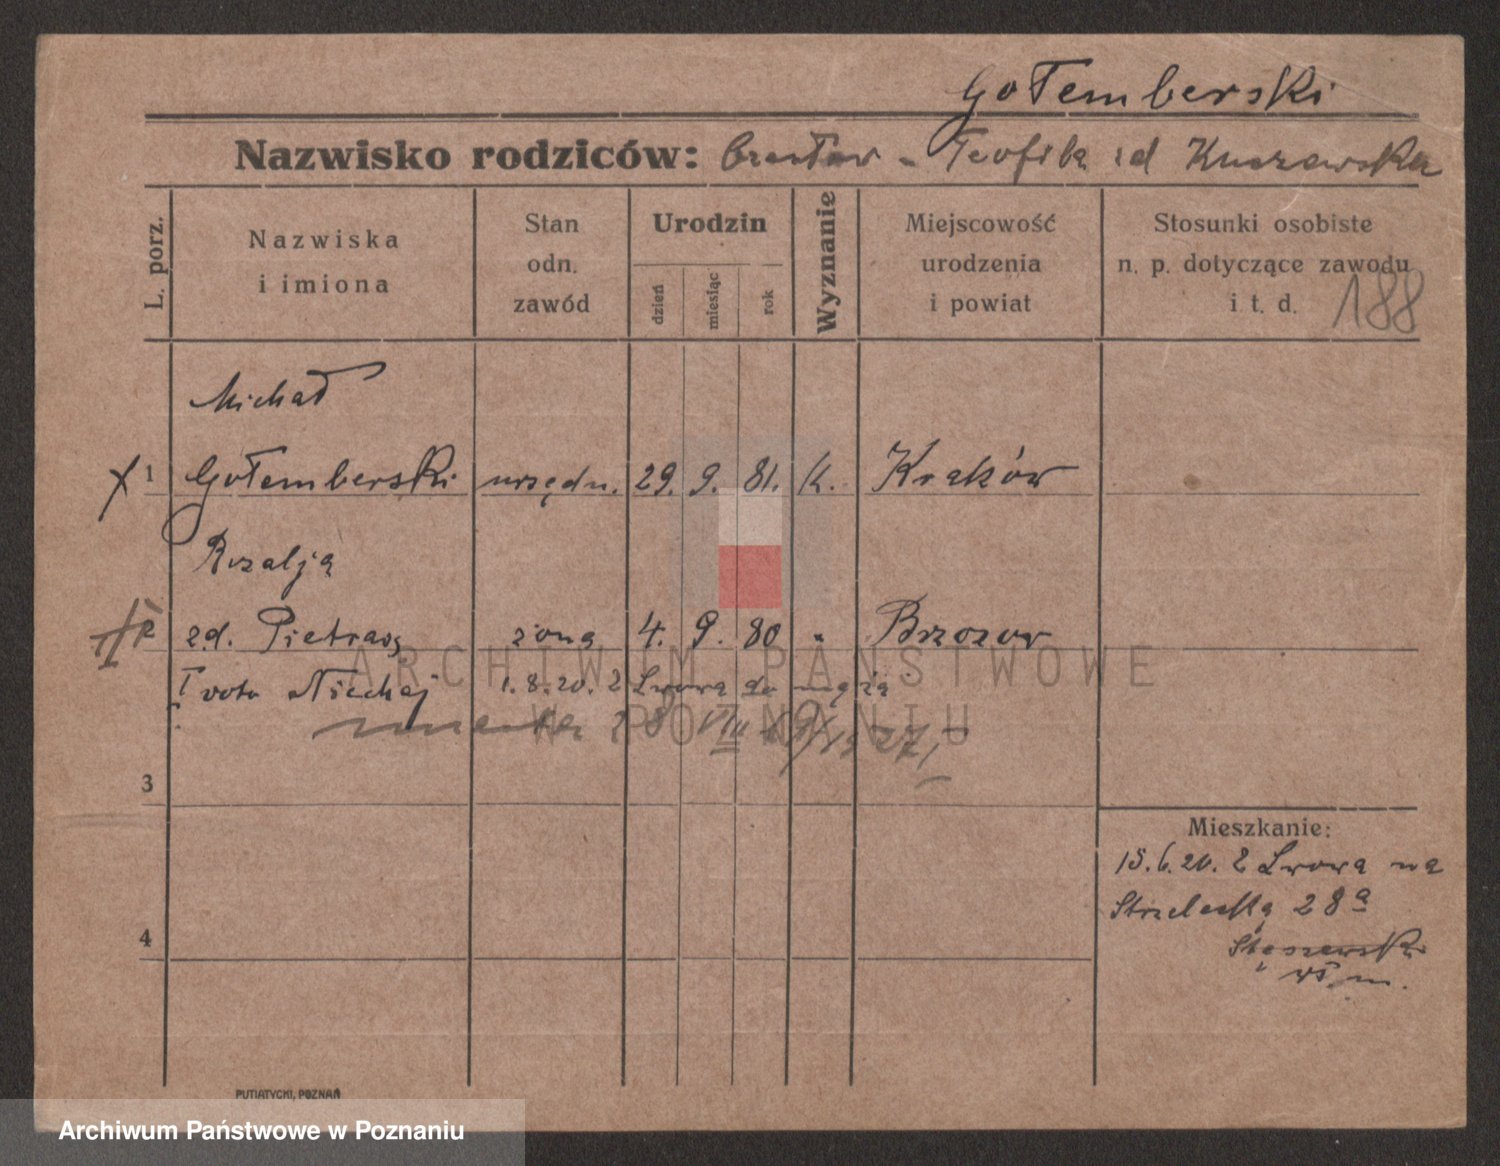 Gołemberski
Nazwisko rodziców: Czesław - Teofila zd Kuczawska
L. porz.
Nazwiska i imiona
Stan odn. zawód
Urodzin
dzień
miesiąc
rok
Wyznanie
Miejscowość urodzenia i powiat
Stosunki osobiste n. p. dotyczące zawodu i t. d.
188
Michał
1 Gołemberski urzędn. 29. 9. 81. k. Kraków
Rozalja
2 zd. Pietrasz żona 4. 9. 80 " Brzozów
I voto Niechaj 1.8.20. z Lwowa do męża
zmarła 8 VIII
3
Mieszkanie:
15.6.20. z Lwowa na
Strzelecką 28a
4
Stęszewski
wł. m.
PUTIATYCKI, POZNAŃ
ARCHIWUM PAŃSTWOWE
W POZNANIU
Archiwum Państwowe w Poznaniu